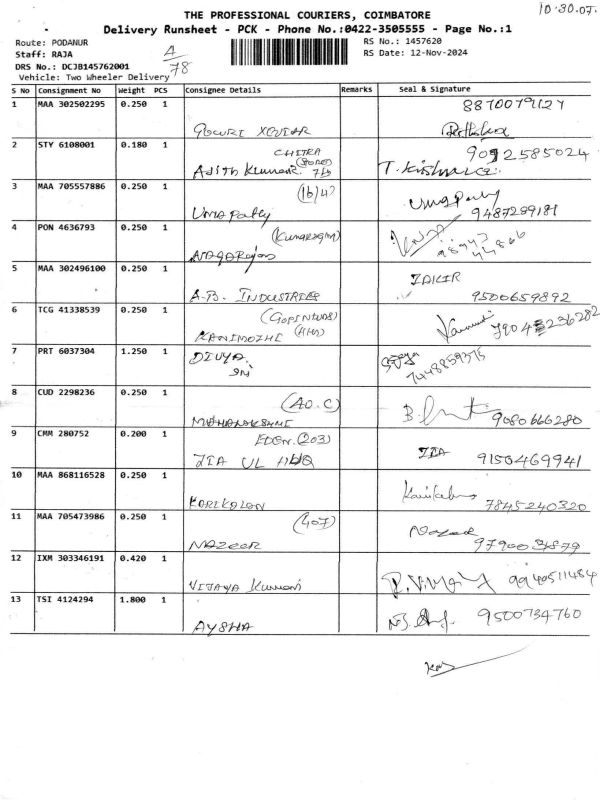 10-30.07.
THE PROFESSIONAL COURIERS, COIMBATORE
Delivery Runsheet - PCK - Phone No.:0422-3505555 - Page No.:1
Route: PODANUR
RS No.: 1457620
Staff: RAJA
RS Date: 12-Nov-2024
DRS No.: DCJB145762001
4/78
Vehicle: Two Wheeler Delivery
S No Consignment No Weight PCS Consignee Details Remarks Seal & Signature
1 MAA 302502295 0.250 1 8870079127
GOWRI XEVIAR
2 STY 6108001 0.180 1 CHITRA 9092585024
Ajith Kumar T. Krishna
3 MAA 705557886 0.250 1 (16/4)
Umapathy Umapathy 9487299181
4 PON 4636793 0.250 1
NAGARajan 98943 44866
5 MAA 302496100 0.250 1 ZAKIR
A.B. INDUSTRIES 9500659892
6 TCG 41338539 0.250 1
KANIMOZHI 7904236282
7 PRT 6037304 1.250 1 DIVYA. 7448859375
SRI
8 CUD 2298236 0.250 1 (AO.C)
MAHALAKSHMI 9080666280
9 CMM 280752 0.200 1 EDEN.(203)
ZIA UL HAQ ZIA 9150469941
10 MAA 868116528 0.250 1
KARIKALAN 7845240320
11 MAA 705473986 0.250 1 (407)
NAZEER Nazeer
12 IXM 303346191 0.420 1
VIJAYA Kumari 9940511484
13 TSI 4124294 1.800 1 9500734760
AYSHA